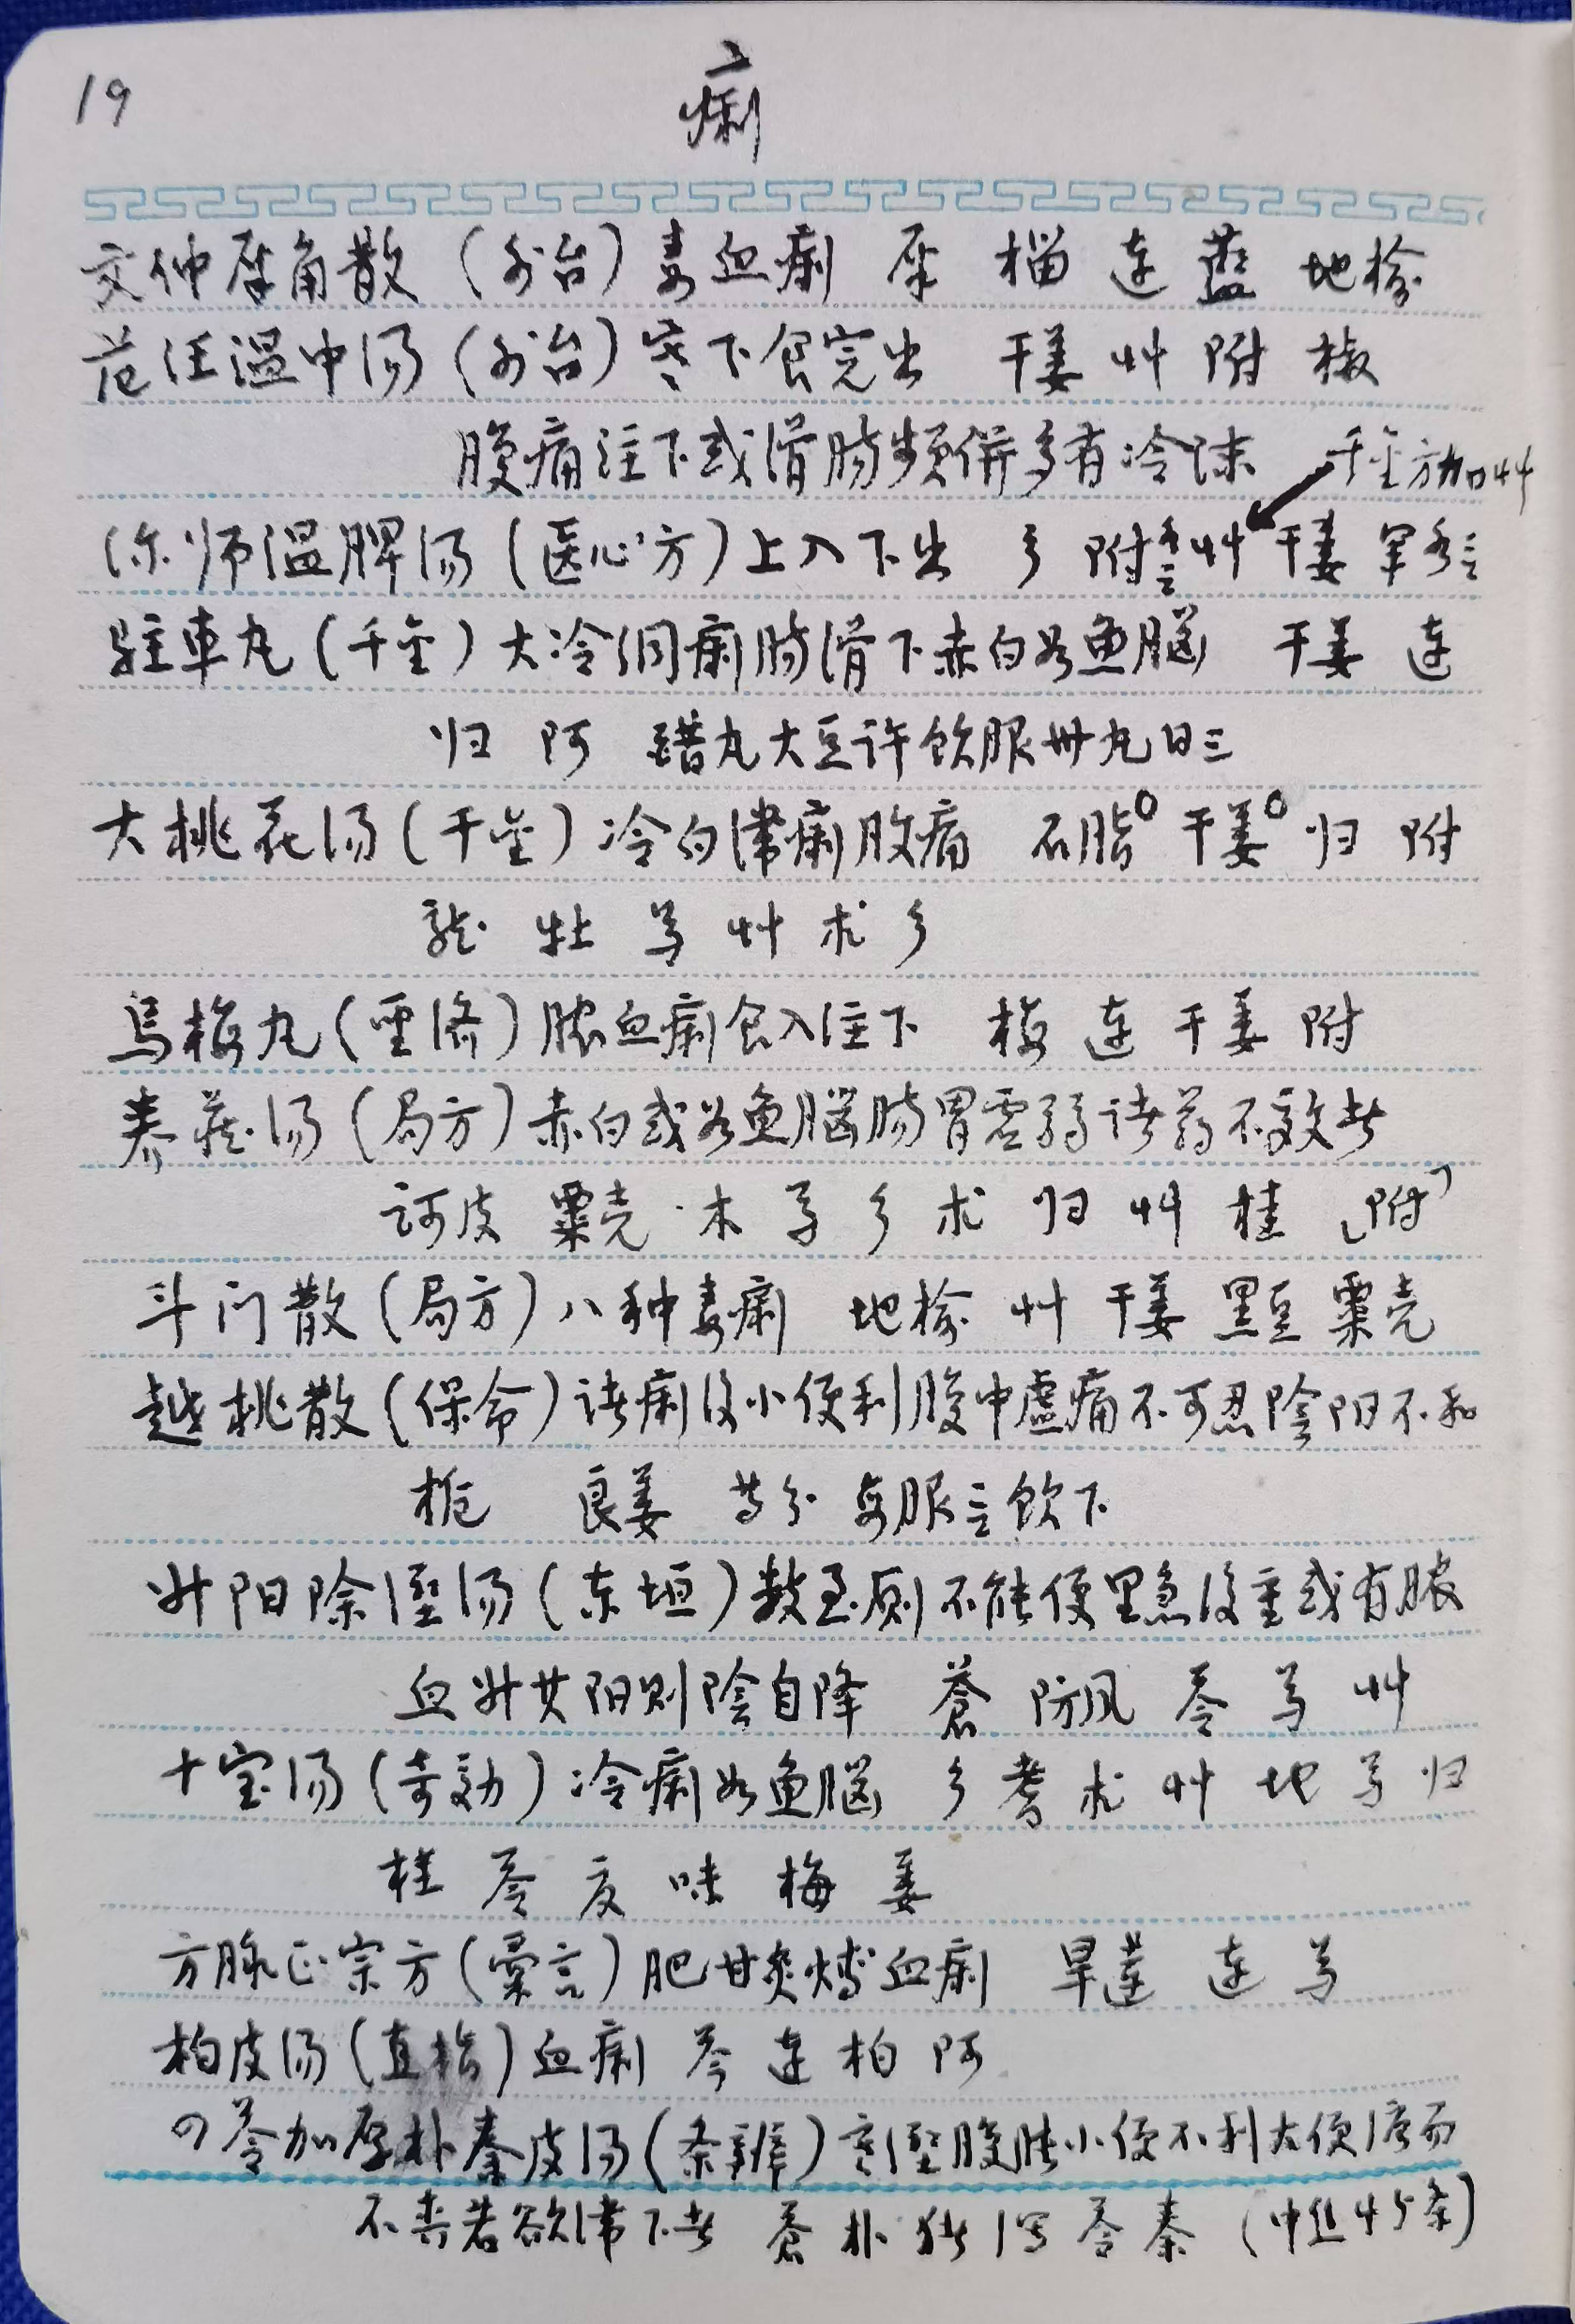 19
痢
文仲犀角散（外台）毒血痢 犀 榴 连 蓝 地榆
范汪温中汤（外台）寒下食完出 干姜 艸 附 椒
腹痛注下或滑肠频併多有冷沫 千金方加艸
深师温脾汤（医心方）上入下出 附 艸 干姜
驻車丸（千金）大冷洞痢肠滑下赤白如鱼脑 干姜 连
归 阿 醋丸大豆许饮服卅丸日三
大桃花汤（千金）冷白滞痢腹痛 石脂 干姜 归 附
龙 牡 芍 艸 术 参
烏梅丸（聖濟）脓血痢食入注下 梅 连 干姜 附
养藏汤（局方）赤白或如鱼脑肠胃虚弱诸药不效者
诃皮 粟壳 木 芍 参 术 归 艸 桂（附）
斗门散（局方）八种毒痢 地榆 艸 干姜 黑豆 粟壳
越桃散（保命）诸痢後小便利腹中虚痛不可忍陰阳不和
栀 良姜 等分 每服三 饮下
升阳除湿汤（东垣）数至厕不能便里急後重或有脓
血升其阳则陰自降 蒼 防风 苓 芍 艸
十宝汤（奇効）冷痢如鱼脑 参 耆 术 艸 地 芍 归
桂 苓 夏 味 梅 姜
方脉正宗方（彙言）肥甘炙煿血痢 旱莲 连 芍
柏皮汤（直指）血痢 芩 连 柏 阿
四苓加厚朴秦皮汤（条辨）寒湿腹胀小便不利大便溏而
不爽若欲滞下者 蒼 朴 猪 泻 苓 秦（中焦45条）